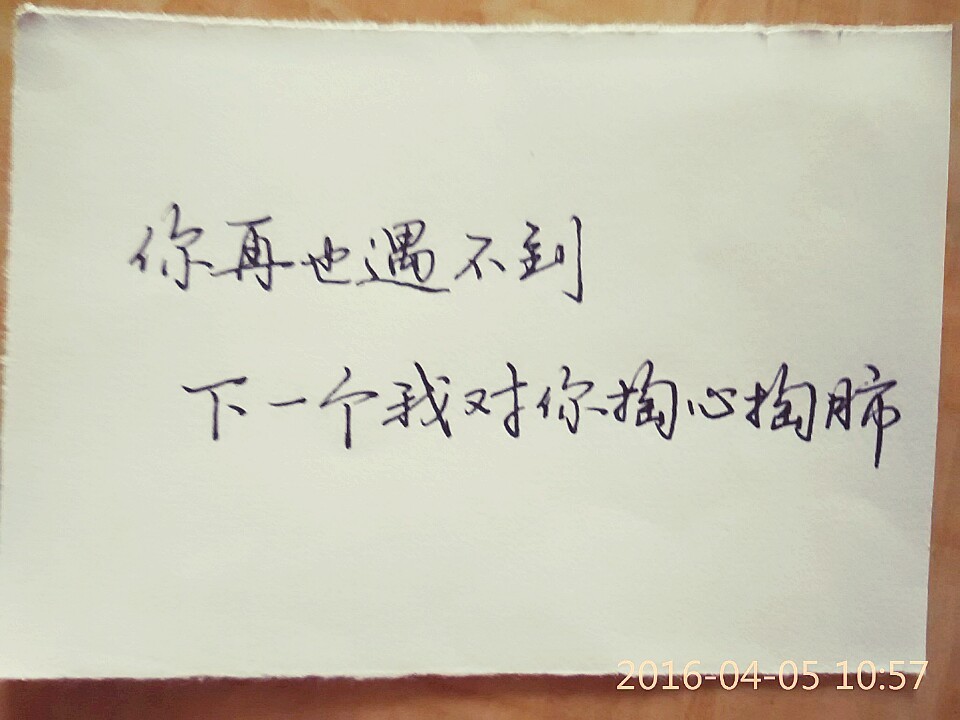 你再也遇不到
下一个我对你掏心掏肺
2016-04-05 10:57